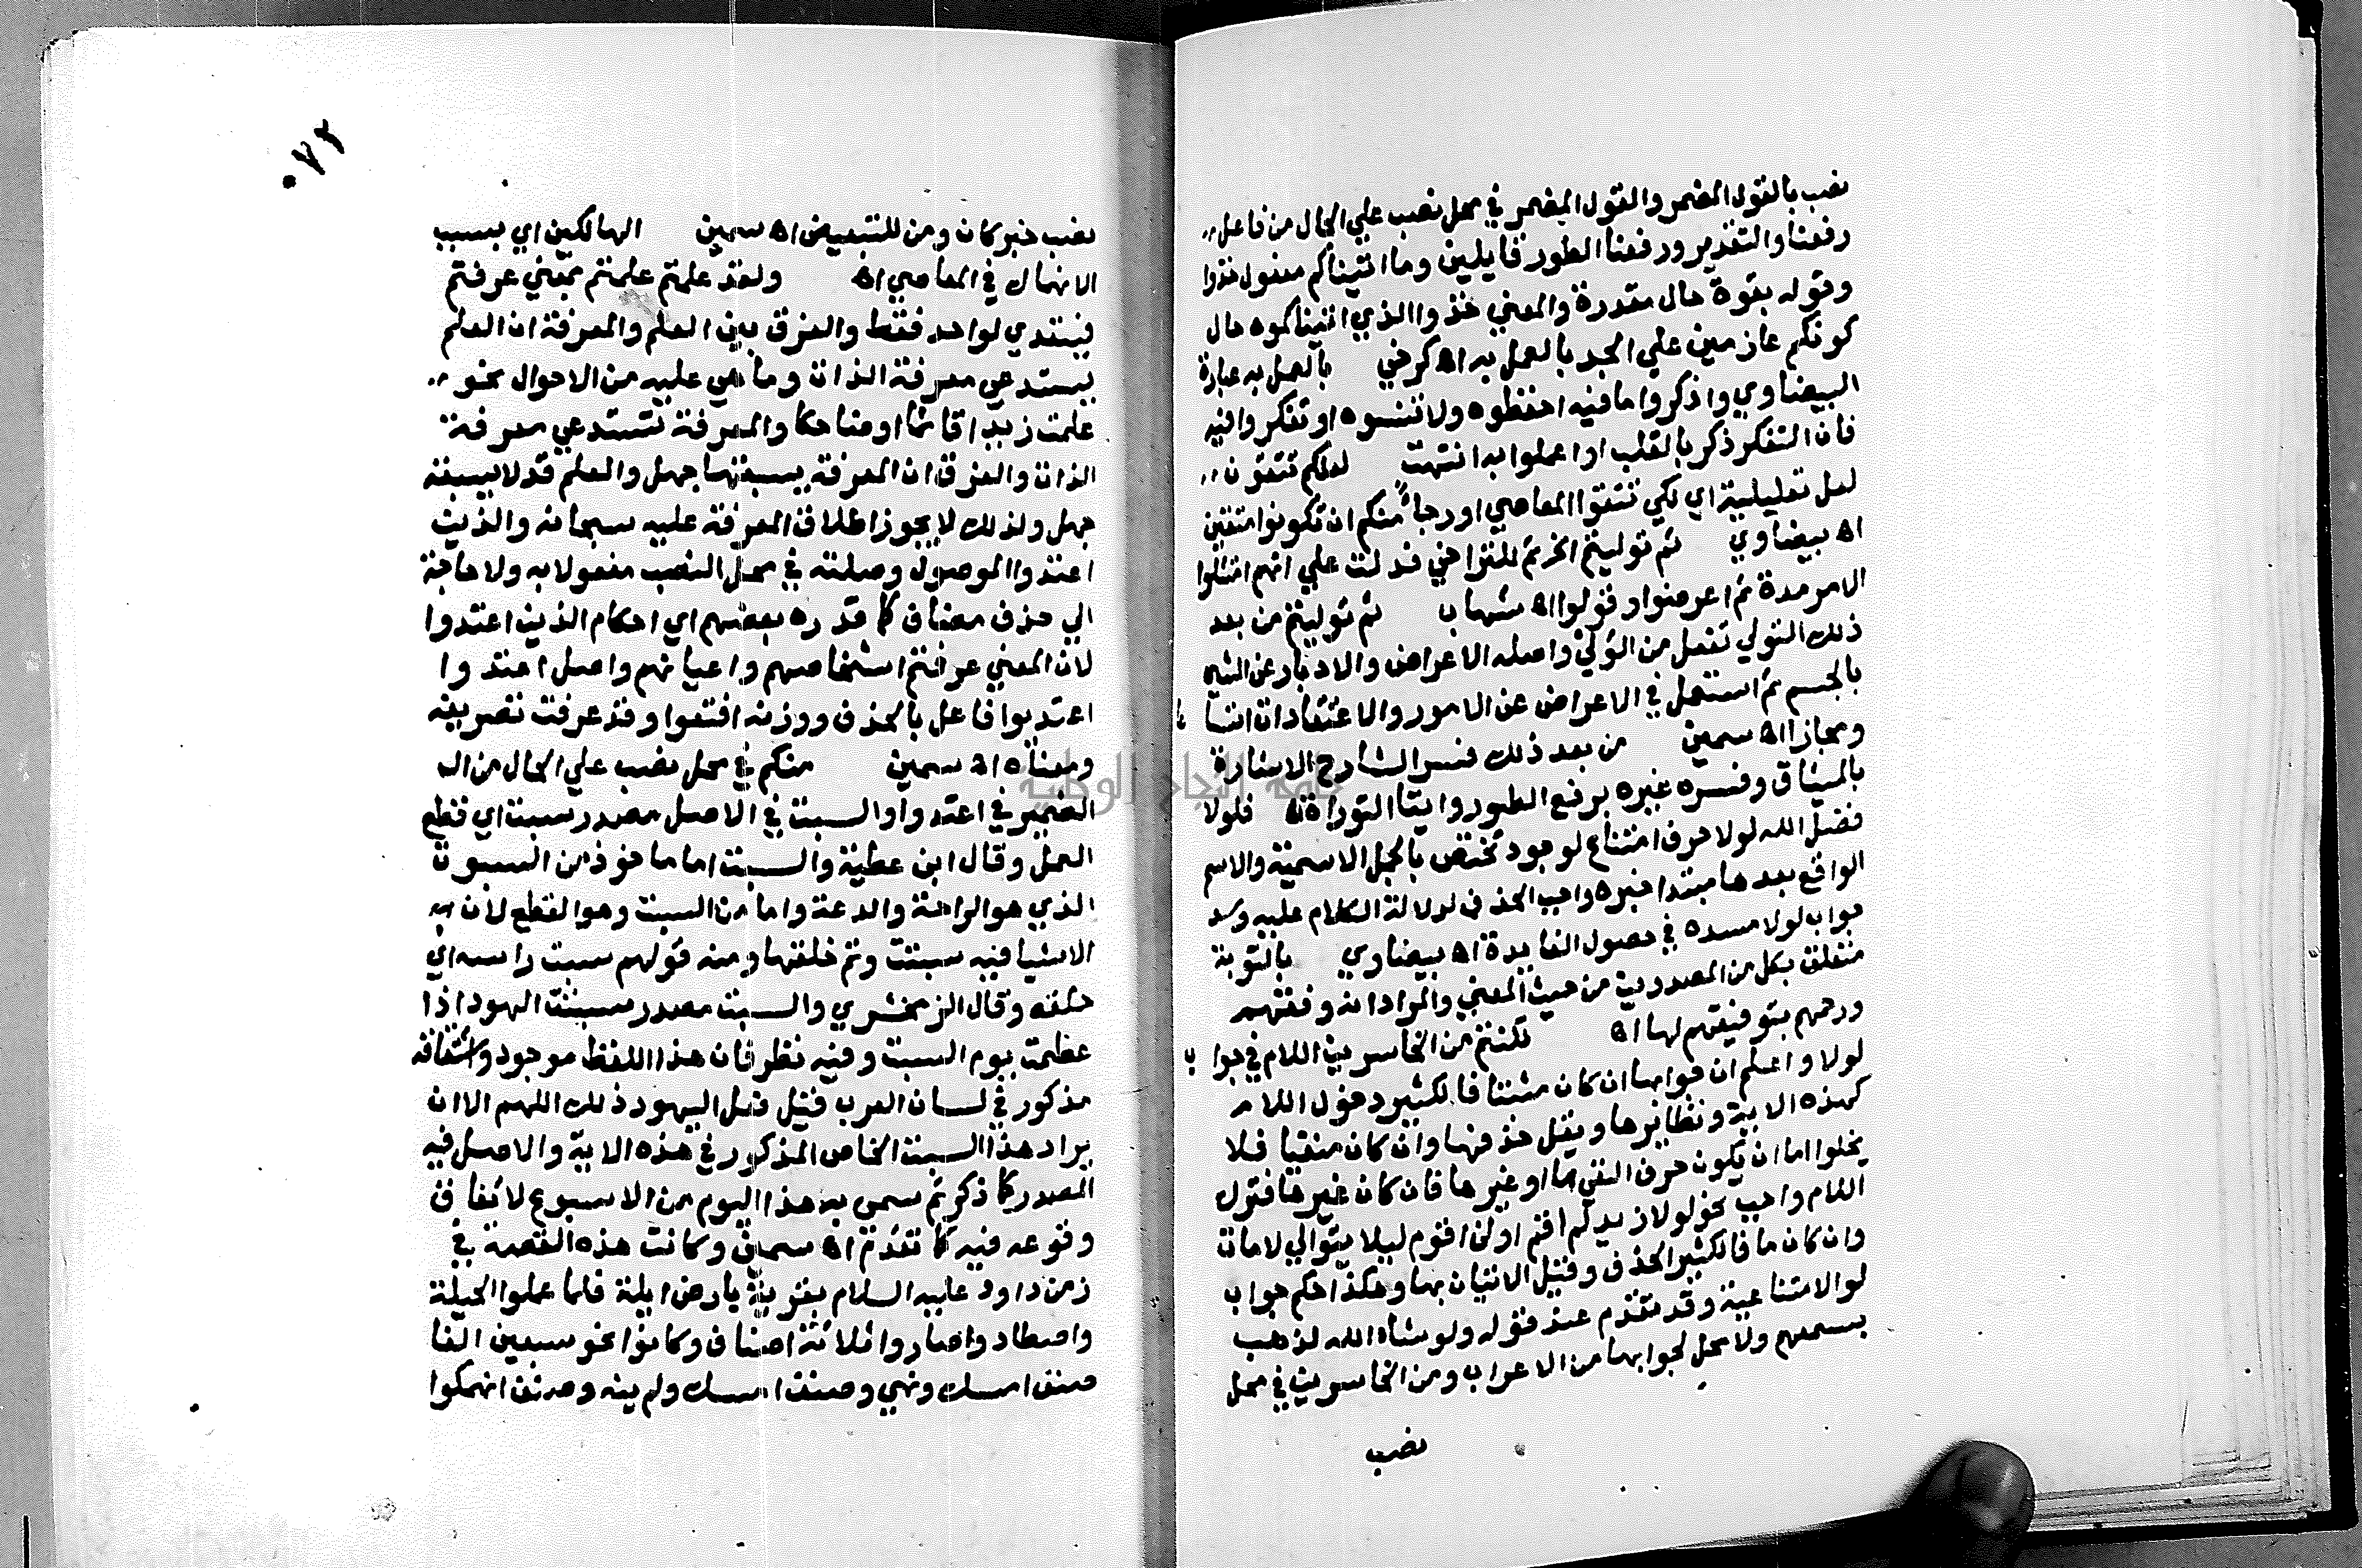 نصب بالقول المضمر والقول المضمر في محل نصب علي الحال من فاعل
رفعنا والتقدير ورفعنا الطور قايلين وما اتيناكم مفعول خذوا
وقوله بقوة حال مقدرة والمعني خذوا الذي اتيناكموه حال
كونكم عازمين علي الجد بالعمل به اه كرخي بالعمل به عبارة
البيضاوي واذكروا ما فيه احفظوه ولا تنسوه او تفكروا فيه
فان التفكر ذكر بالقلب او اعملوا به انتهت لعلكم تتقون
لعل تعليلية اي لكي تتقوا المعاصي او رجاً منكم ان تكونوا متقين
اه بيضاوي ثم توليتم الخ ثم للتراخي فدلت علي انهم امتثلوا
الامر مدة ثم اعرضوا وتولوا اه شهاب ثم توليتم من بعد
ذلك التولي تفعل من الولي واصله الاعراض والادبار عن الشي
بالجسم ثم استعمل في الاعراض عن الامور والاعتقادات اتسا عا
ومجازا اه سمين من بعد ذلك فسر الشارح الاشارة
بالميثاق وفسره غيره برفع الطور وايتا التوراة اه فلولا
فضل الله لولا حرف امتناع لوجود تختص بالجمل الاسمية والاسم
الواقع بعدها مبتدا خبره واجب الحذف لدلالة الكلام عليه وسد
جواب لولا مسده في حصول الفايدة اه بيضاوي بالتوبة
متعلق بكل من المصدرين من حيث المعني والمراد انه وفقهم
ورحمهم بتوفيقهم لها اه لكنتم من الخاسرين اللام في جوا ب
لولا واعلم ان جوابها ان كان مثبتا فالكثير دخول اللام
كهذه الاية ونظايرها ويقل حذفها وان كان منفيا فلا
يخلوا اما ان يكون حرف النفي ما او غيرها فان كان غيرها فترك
اللام واجب نحو لولا زيد لم اقم او لن اقوم ليلا يتوالي لامان
وان كان ما فالكثير الحذف وقيل الاتيان بها وهكذا حكم جواب
لو الامتناعية وقد تقدم عند قوله ولو شاء الله لذهب
بسمعهم ولا محل لجوابها من الاعراب ومن الخاسرين في محل
نصب
٠٧٢
نصب خبر كان ومن للتبعيض اه سمين الهالكين اي بسبب
الانهماك في المعاصي اه ولقد علمتم علمتم بمعني عرفتم
فيتعدي لواحد فقط والفرق بين العلم والمعرفة ان العلم
يستدعي معرفة الذات وما هي عليه من الاحوال نحو
علمت زيدا قائما او ضاحكا والمعرفة تستدعي معرفة
الذات والفرق ان المعرفة يسبقها جهل والعلم قد لا يسبقه
جهل ولذلك لا يجوز اطلاق المعرفة عليه سبحانه والذين
اعتدوا الموصول وصلته في محل النصب مفعولا به ولا حاجة
الي حذف مضاف كما قدره بعضهم اي احكام الذين اعتدوا
لان المعني عرفتم اشخاصهم واعيانهم واصل اعتدوا
اعتديوا فاعل بالحذف ووزنه افتعوا وقد عرفت تصريفه
ومعناه اه سمين منكم في محل نصب علي الحال من ال
الضمير في اعتدوا والسبت في الاصل مصدر سبت اي قطع
العمل وقال ابن عطية والسبت اما ماخوذ من السبوت
الذي هو الراحة والدعة واما من السبت وهو القطع لان
الاشيا فيه سبتت وتم خلقتها ومنه قولهم سبت راسه اي
حلقه وقال الزمخشري والسبت مصدر سبتت اليهود اذا
عظمت يوم السبت وفيه نظر فان هذا اللفظ موجود واشتقاقه
مذكور في لسان العرب قبل فعل اليهود ذلك اللهم الا ان
يراد هذا السبت الخاص المذكور في هذه الاية والاصل فيه
المصدر كما ذكر ثم سمي به هذا اليوم من الاسبوع لاتفاق
وقوعه فيه كما تقدم اه سمين وكانت هذه القصة في
زمن داود عليه السلام بقرية بارض ايلة فلما عملوا الحيلة
واصطادوا صاروا ثلاثة اصناف وكانوا نحو سبعين الفا
صنف امسك ونهي وصنف امسك ولم ينه وصنف انهمكوا